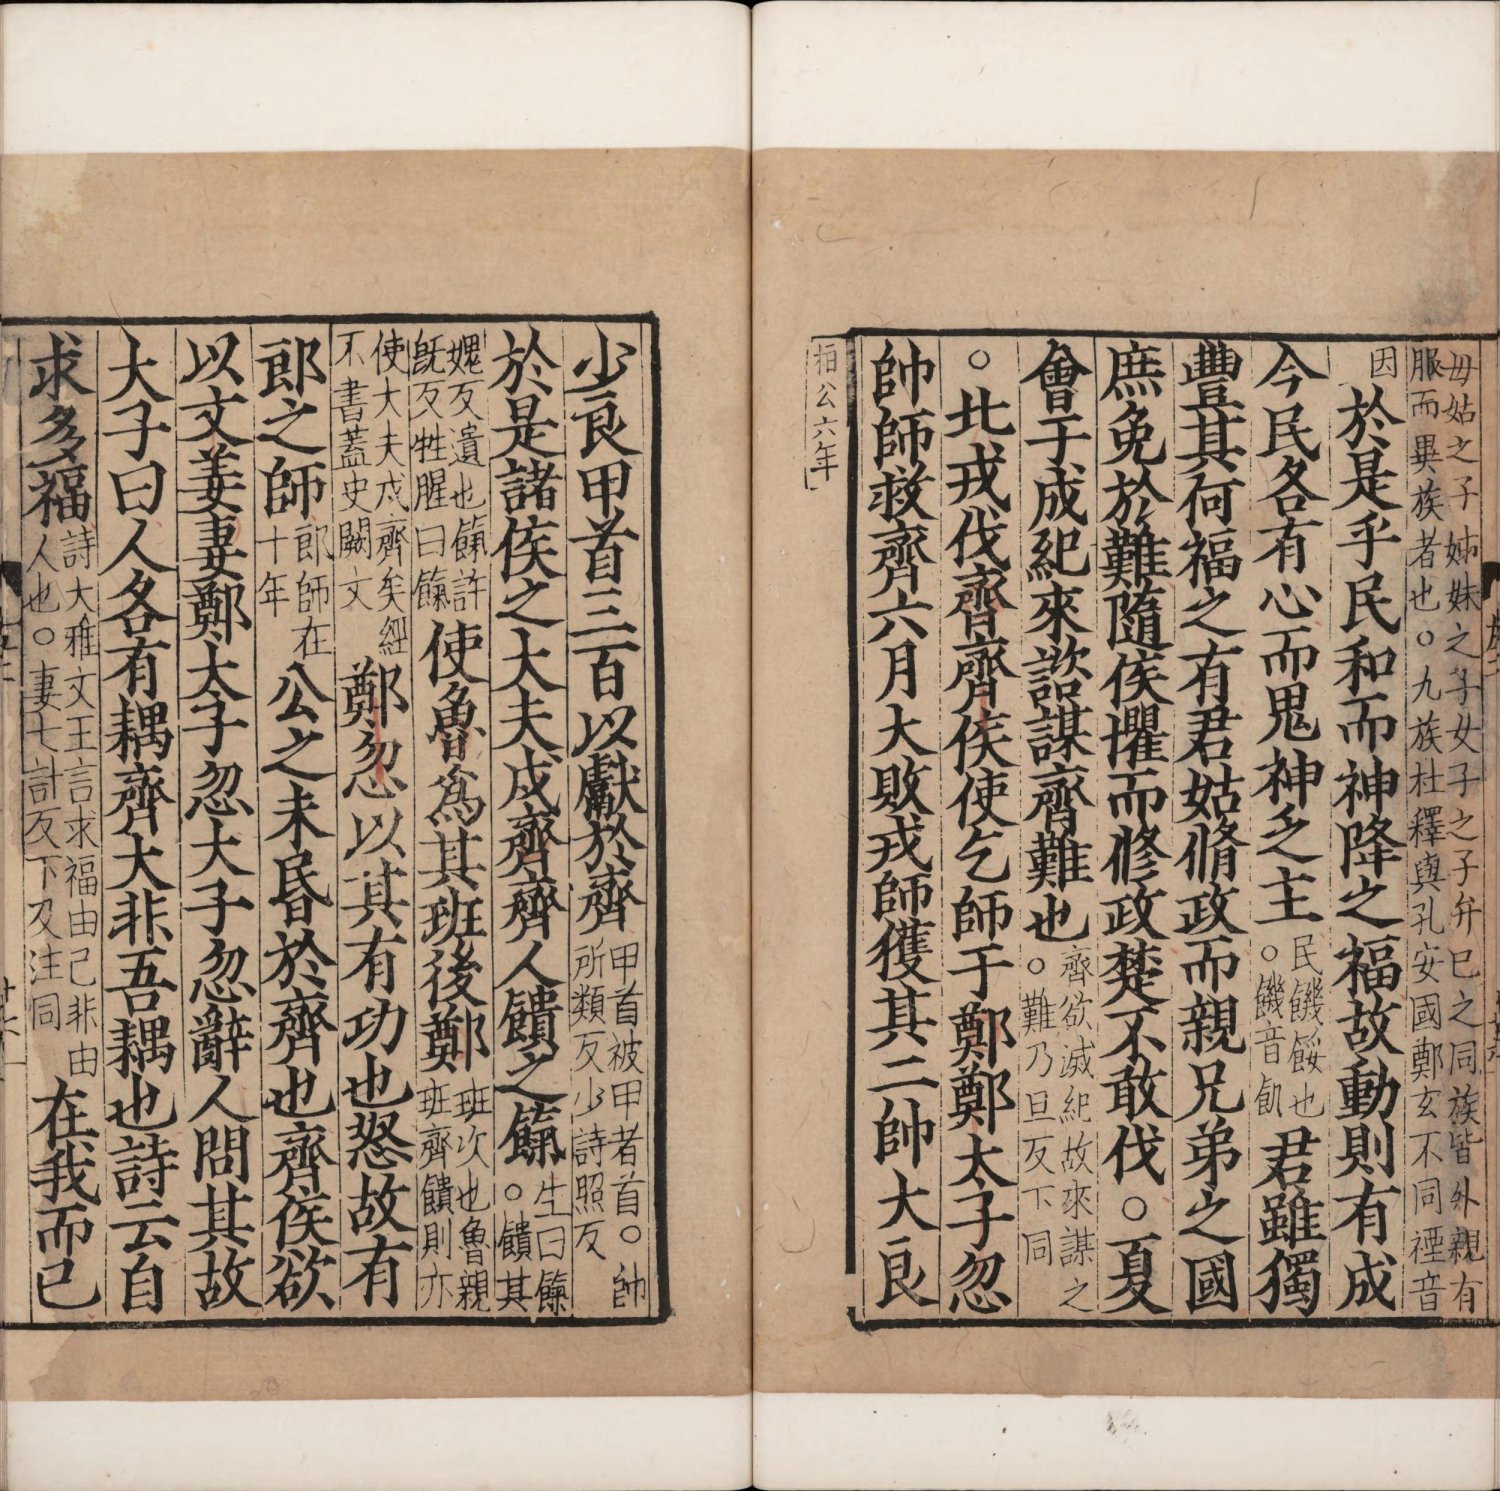 毋姑之子姊妹之子女子之子并己之同族皆外親有
服而異族者也○九族杜釋與孔安國鄭玄不同禋音
因
於是乎民和而神降之福故動則有成
今民各有心而鬼神乏主
民饑餒也
○饑音飢
君雖獨
豐其何福之有君姑脩政而親兄弟之國
庶免於難隨侯懼而修政楚不敢伐○夏
會于成紀來諮謀齊難也
齊欲滅紀故來謀之
○難乃旦反下同
○北戎伐齊齊侯使乞師于鄭鄭太子忽
帥師救齊六月大敗戎師獲其二帥大良
桓公六年
少良甲首三百以獻於齊
甲首被甲者首○帥
所類反少詩照反
於是諸侯之大夫戍齊齊人饋之餼
生曰餼
○饋其
媿反遺也餼許
旣反牲腥曰餼
使魯爲其班後鄭
班次也魯親
班齊饋則亦
使大夫戍齊矣經
不書蓋史闕文
鄭忽以其有功也怒故有
郎之師
郎師在
十年
公之未昏於齊也齊侯欲
以文姜妻鄭大子忽大子忽辭人問其故
大子曰人各有耦齊大非吾耦也詩云自
求多福
詩大雅文王言求福由己非由
人也○妻七計反下及注同
在我而已